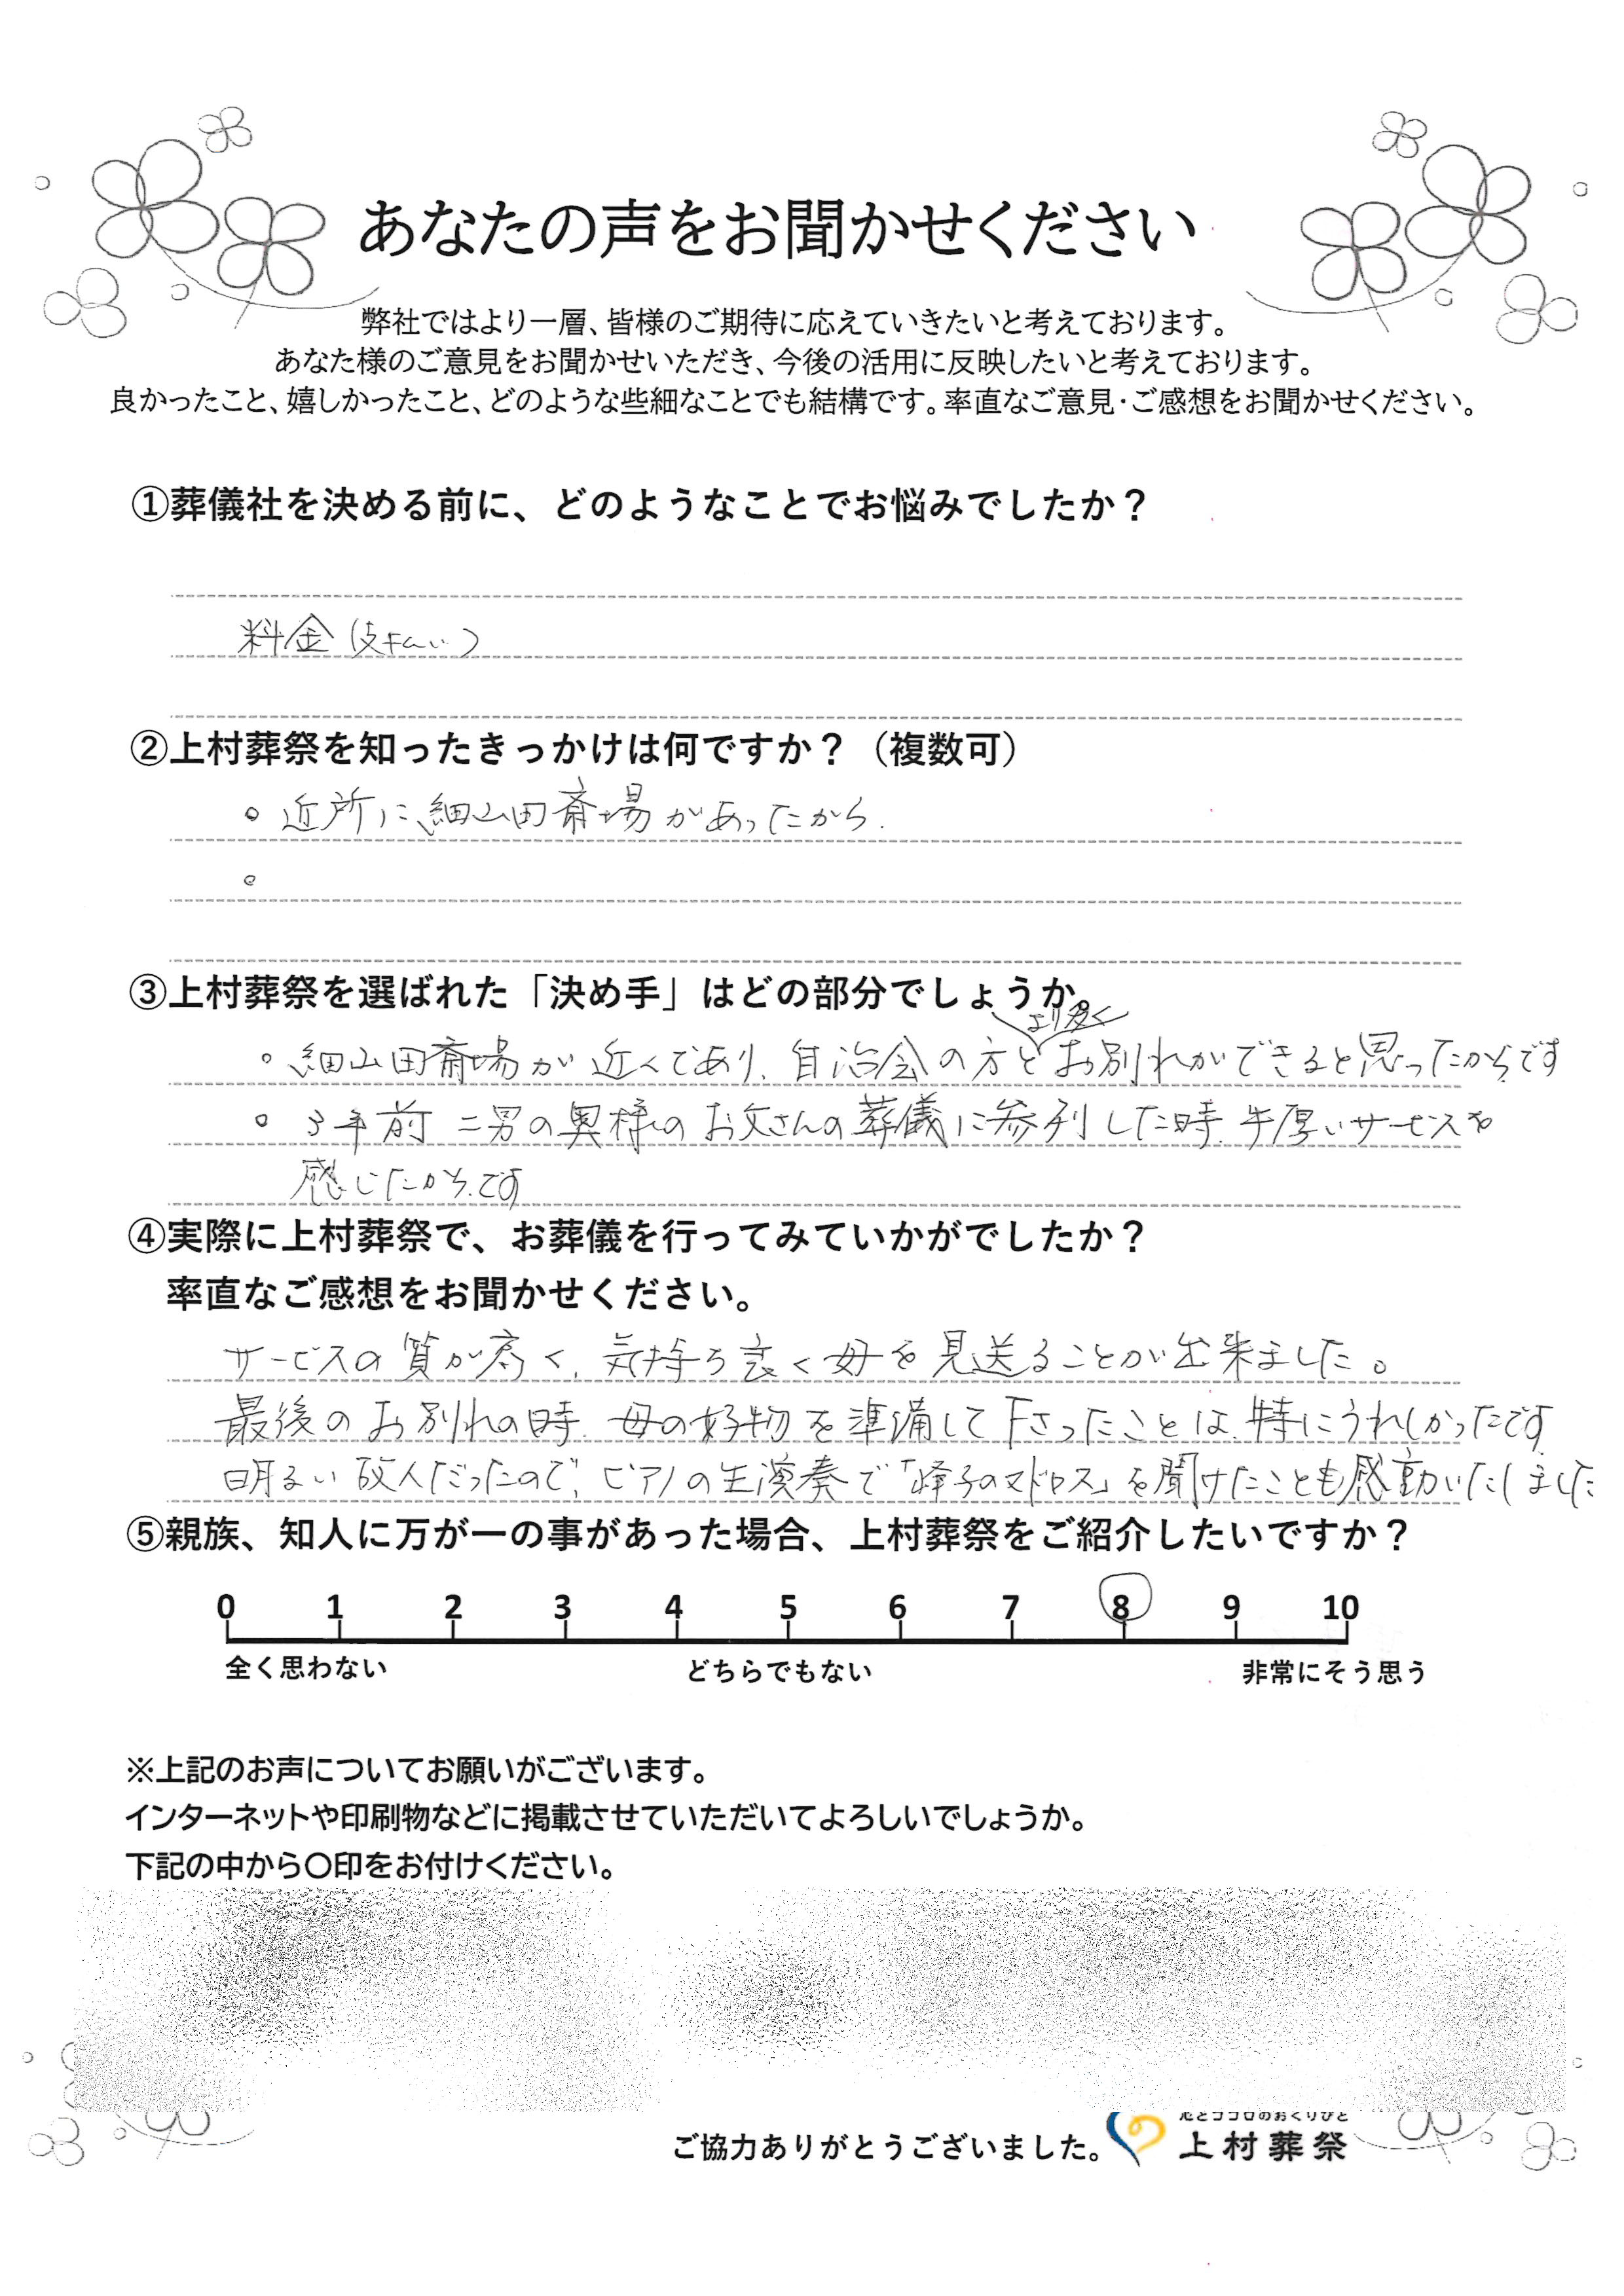 あなたの声をお聞かせください
弊社ではより一層、皆様のご期待に応えていきたいと考えております。
あなた様のご意見をお聞かせいただき、今後の活用に反映したいと考えております。
良かったこと、嬉しかったこと、どのような些細なことでも結構です。率直なご意見・ご感想をお聞かせください。
①葬儀社を決める前に、どのようなことでお悩みでしたか?
料金(支払い)
②上村葬祭を知ったきっかけは何ですか?(複数可)
。近所に細山田斎場があったから.
。
③上村葬祭を選ばれた「決め手」はどの部分でしょうか。
より多く
。細山田斎場が近くであり、自治会の方とお別れができると思ったからです
。3年前 二男の奥様のお父さんの葬儀に参列した時、手厚いサービスを
感じたからです
④実際に上村葬祭で、お葬儀を行ってみていかがでしたか?
率直なご感想をお聞かせください。
サービスの質が高く、気持ち良く母を見送ることが出来ました。
最後のお別れの時、母の好物を準備して下さったことは、特にうれしかったです
明るい故人だったので、ピアノの生演奏で「峰子のマドロス」を聞けたことも感動いたしました
⑤親族、知人に万が一の事があった場合、上村葬祭をご紹介したいですか?
0 1 2 3 4 5 6 7 8 9 10
全く思わない どちらでもない 非常にそう思う
※上記のお声についてお願いがございます。
インターネットや印刷物などに掲載させていただいてよろしいでしょうか。
下記の中から〇印をお付けください。
ご協力ありがとうございました。
花とココロのおくりびと
上村葬祭